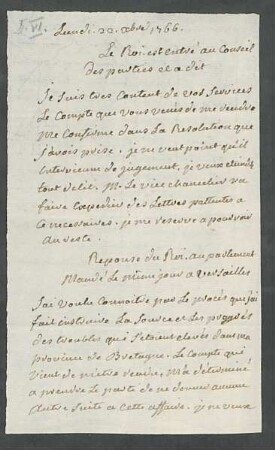 Lundi 22 xbre 1766.
Le Roi est entré au Conseil
des parties et a dit
Je suis tres Content de vos Services
Le Compte que vous venés de me rendre
Me Confirme dans La Resolution que
j'avois prise. je ne veut point qu'il
intervienne de jugement, je veux eteindre
tout delit. M. Le vice chancelier va
faire Expedier des Lettres patentes a
ce necessaires. je me reserve a pourvoir
au reste.
Reponse du Roi, au parlement
Mandé Le même jour a versailles
J'ai voulu Connaitre par Le procés que j'ai
fait instruire La Source et Les progrés
des troubles qui s'etoient elevés dans ma
province de Bretagne. Le Compte qui
vient de m'etre rendu, m'a determiné
a prendre Le parti de ne donner aucune
Autre Suite a Cette affaire. je ne veux